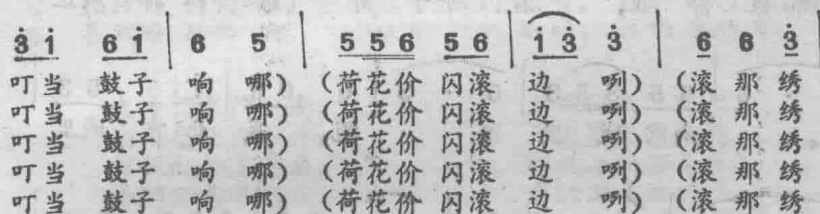 3̇ i̇ 6 i̇ | 6 5 | 5 5 6 5 6 | i̇ 3̇ 3̇ | 6 6 3̇
叮当 鼓子 响 哪) (荷花价 闪滚 边 咧) (滚 那 绣
叮当 鼓子 响 哪) (荷花价 闪滚 边 咧) (滚 那 绣
叮当 鼓子 响 哪) (荷花价 闪滚 边 咧) (滚 那 绣
叮当 鼓子 响 哪) (荷花价 闪滚 边 咧) (滚 那 绣
叮当 鼓子 响 哪) (荷花价 闪滚 边 咧) (滚 那 绣